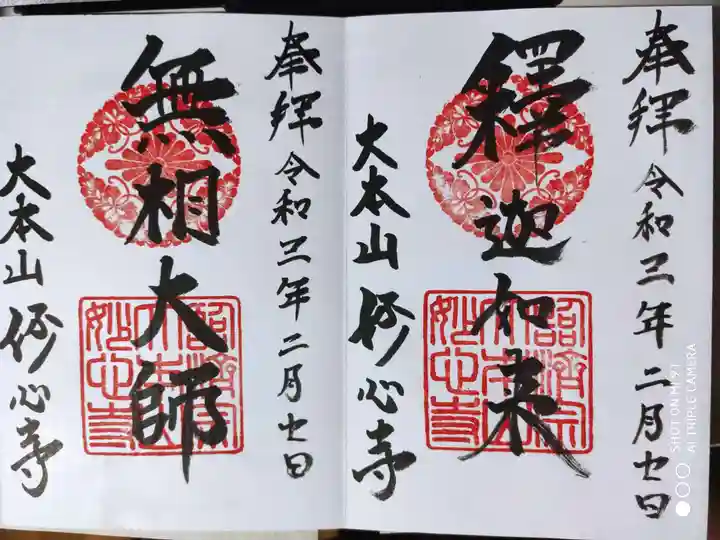 奉拜 令和三年二月七日
釋迦如来
大本山 妙心寺
奉拜 令和三年二月七日
無相大師
大本山 妙心寺
臨済宗
大本山
妙心寺
臨済宗
大本山
妙心寺
SHOT ON MI 9T
AI TRIPLE CAMERA